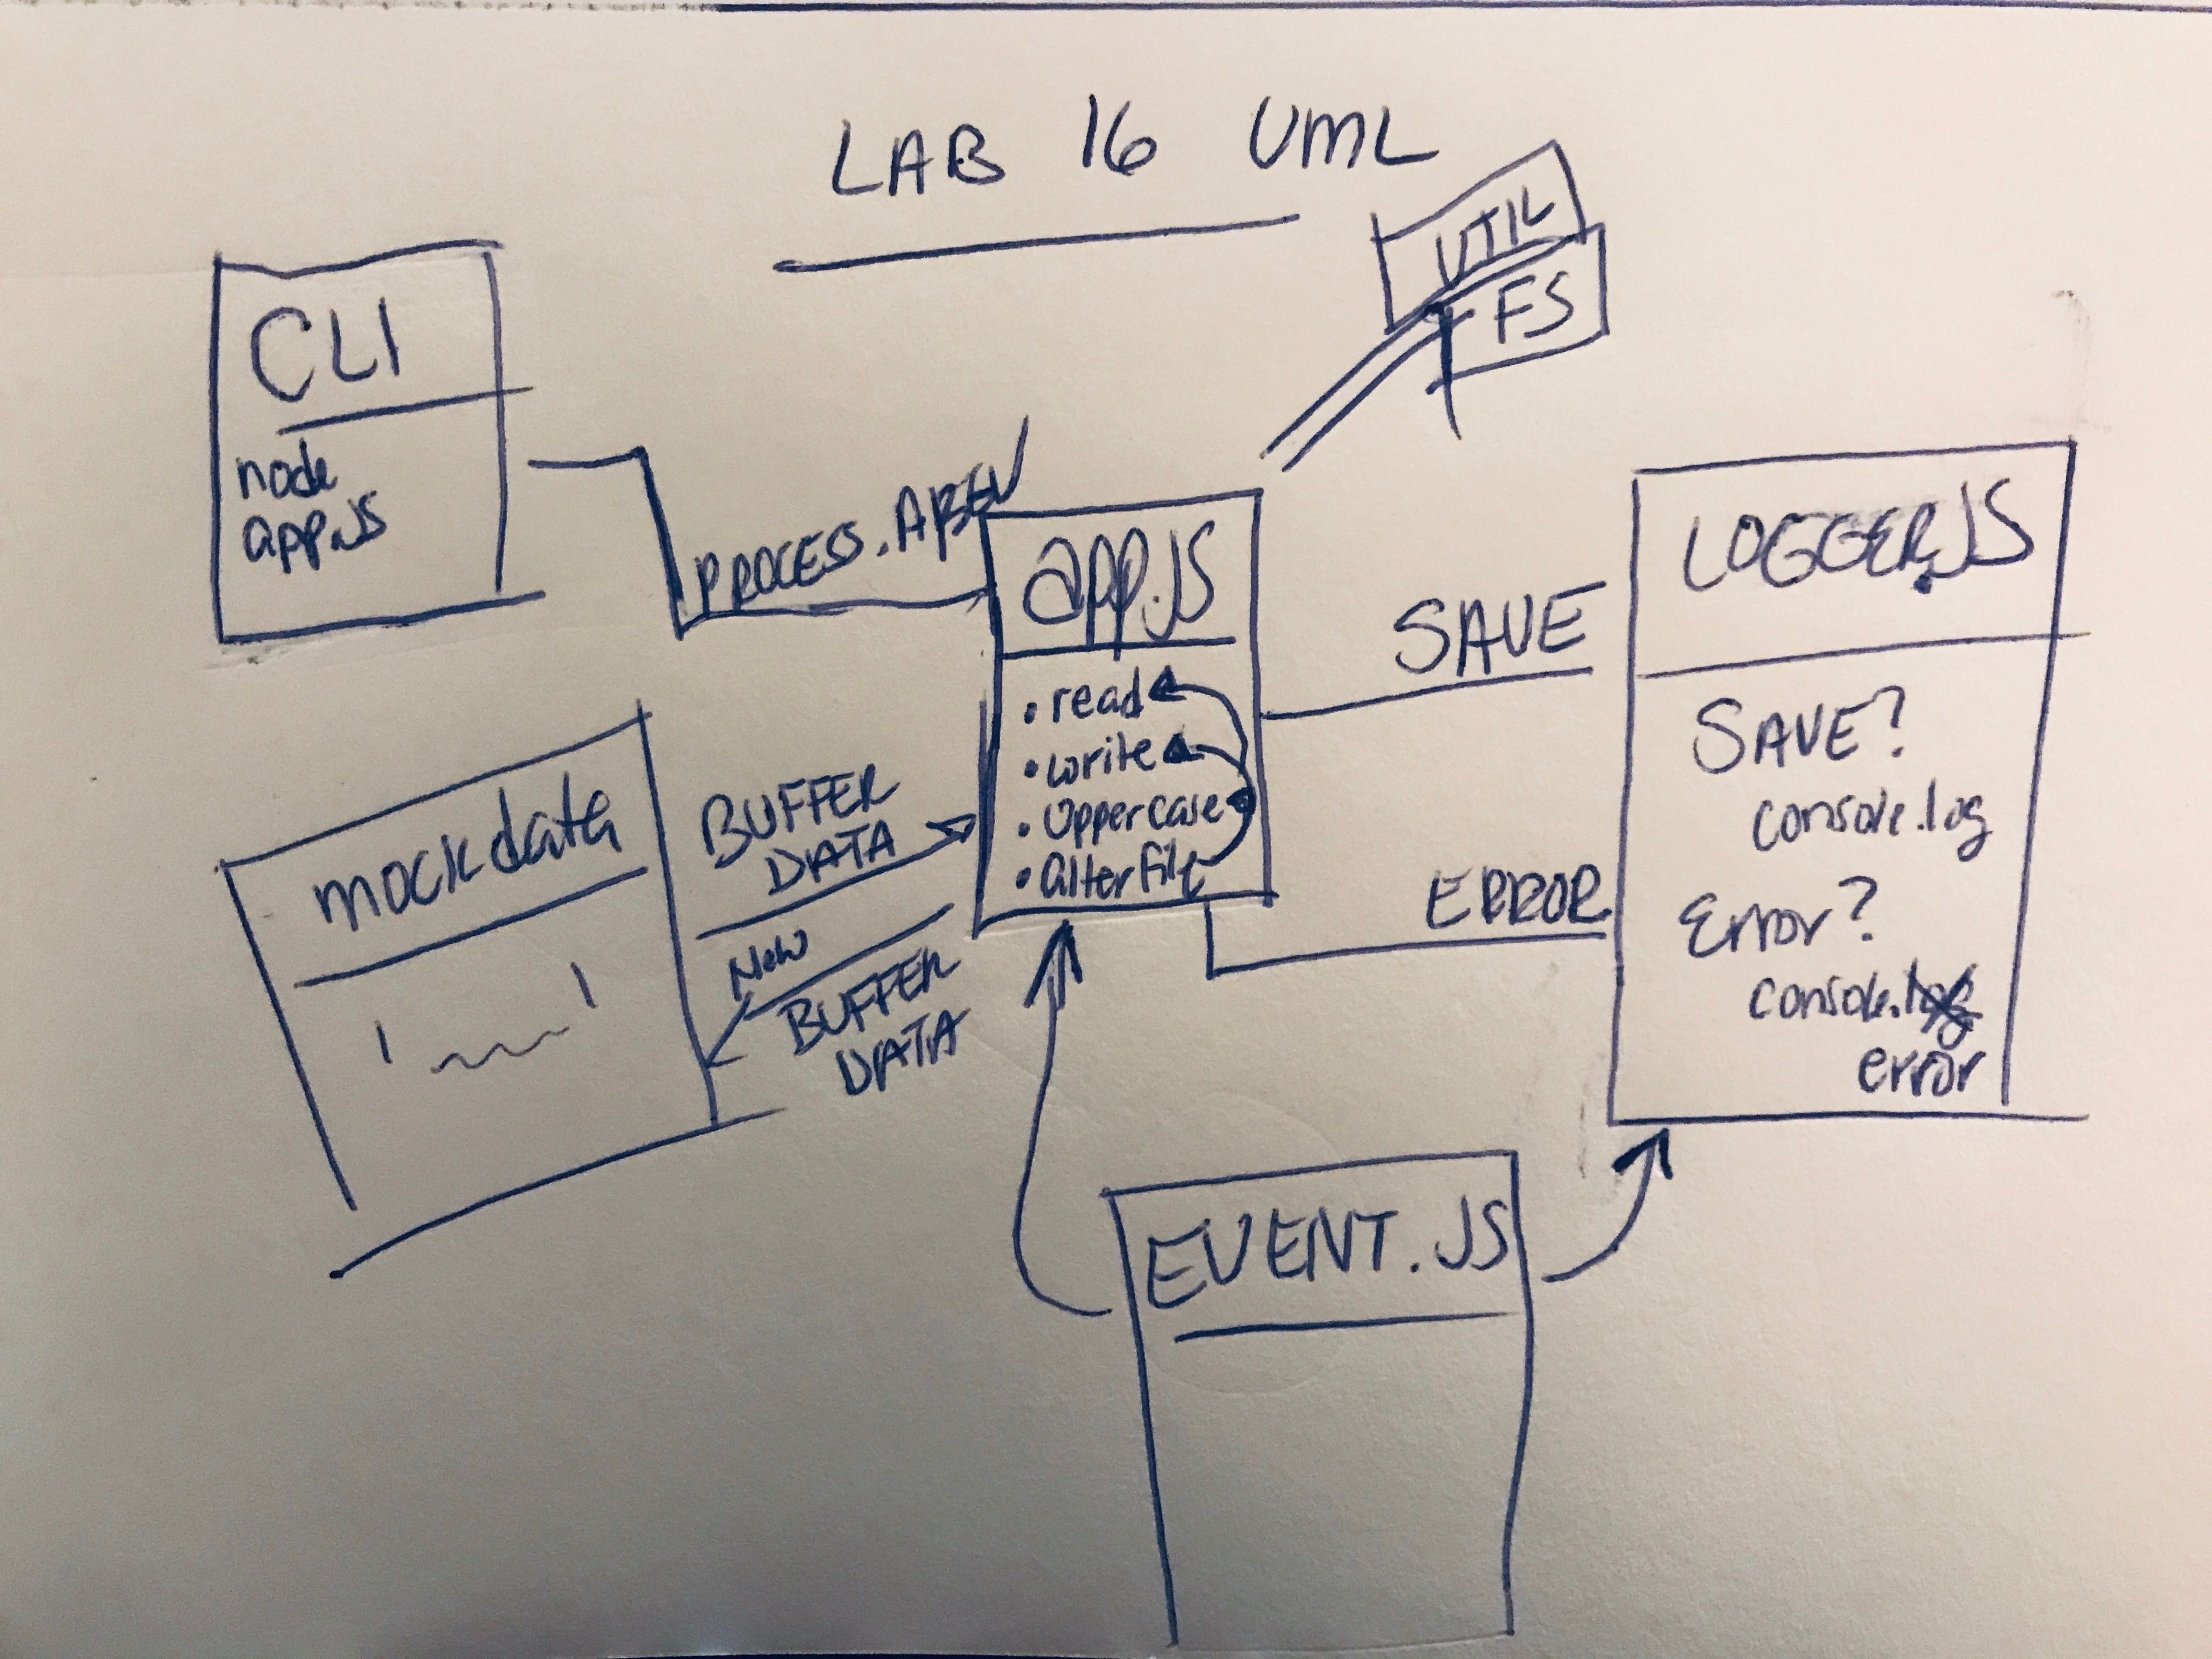 LAB 16 UML
UTIL
FS
CLI
node
app.js
PROCESS.ARGV
app.js
• read
• write
• Uppercase
• alterfile
SAVE
ERROR
LOGGER.JS
SAVE?
console.log
Error?
console.log
error
mock data
BUFFER
DATA
New
BUFFER
DATA
EVENT.JS